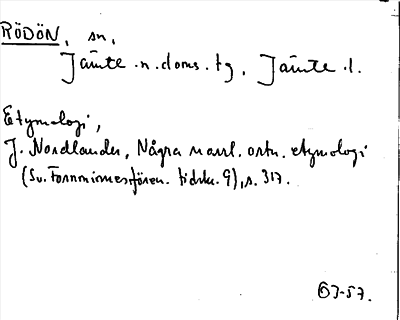 RÖDÖN, sn,
Jämte. n. doms. tg, Jämte. l.
Etymologi,
J. Nordlander, Några norrl. ortn. etymologi
(Sv. Fornminnesfören. tidskr. 9), s. 317.
63-57.